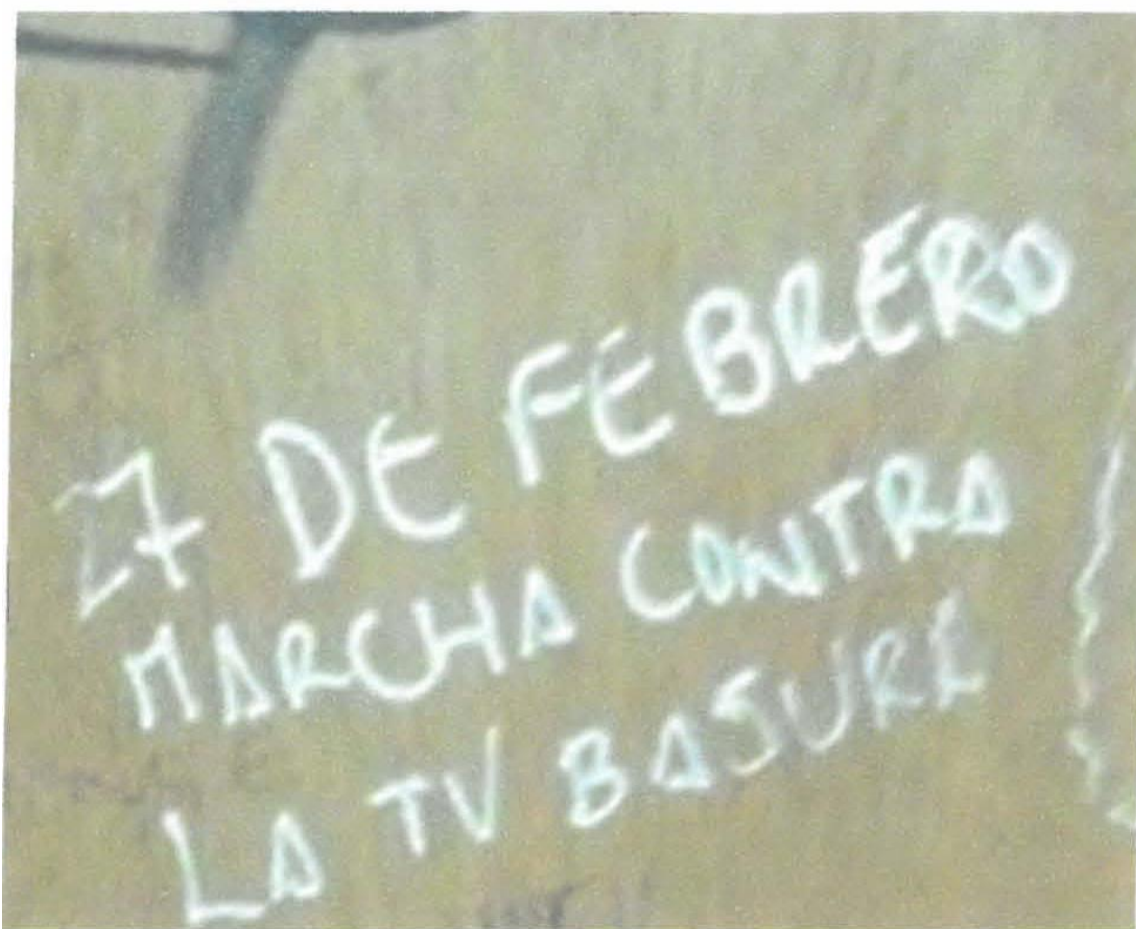 27 DE FEBRERO
MARCHA CONTRA
LA TV BASURA